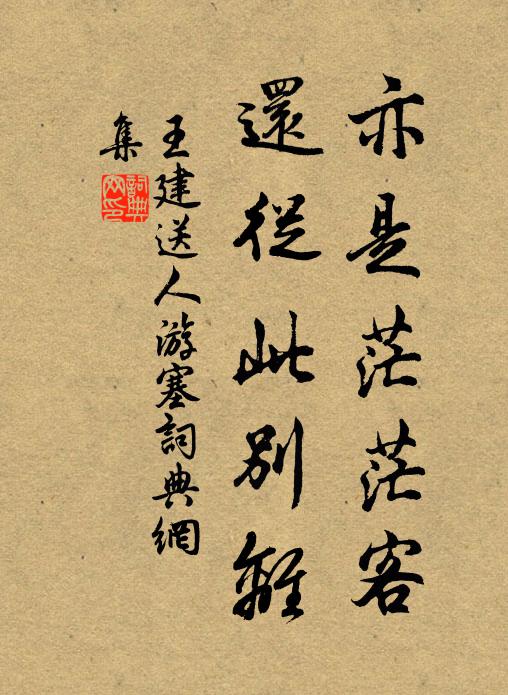 亦是茫茫客
還從此別離
王建送人游塞詞典網
集
詞典
网印